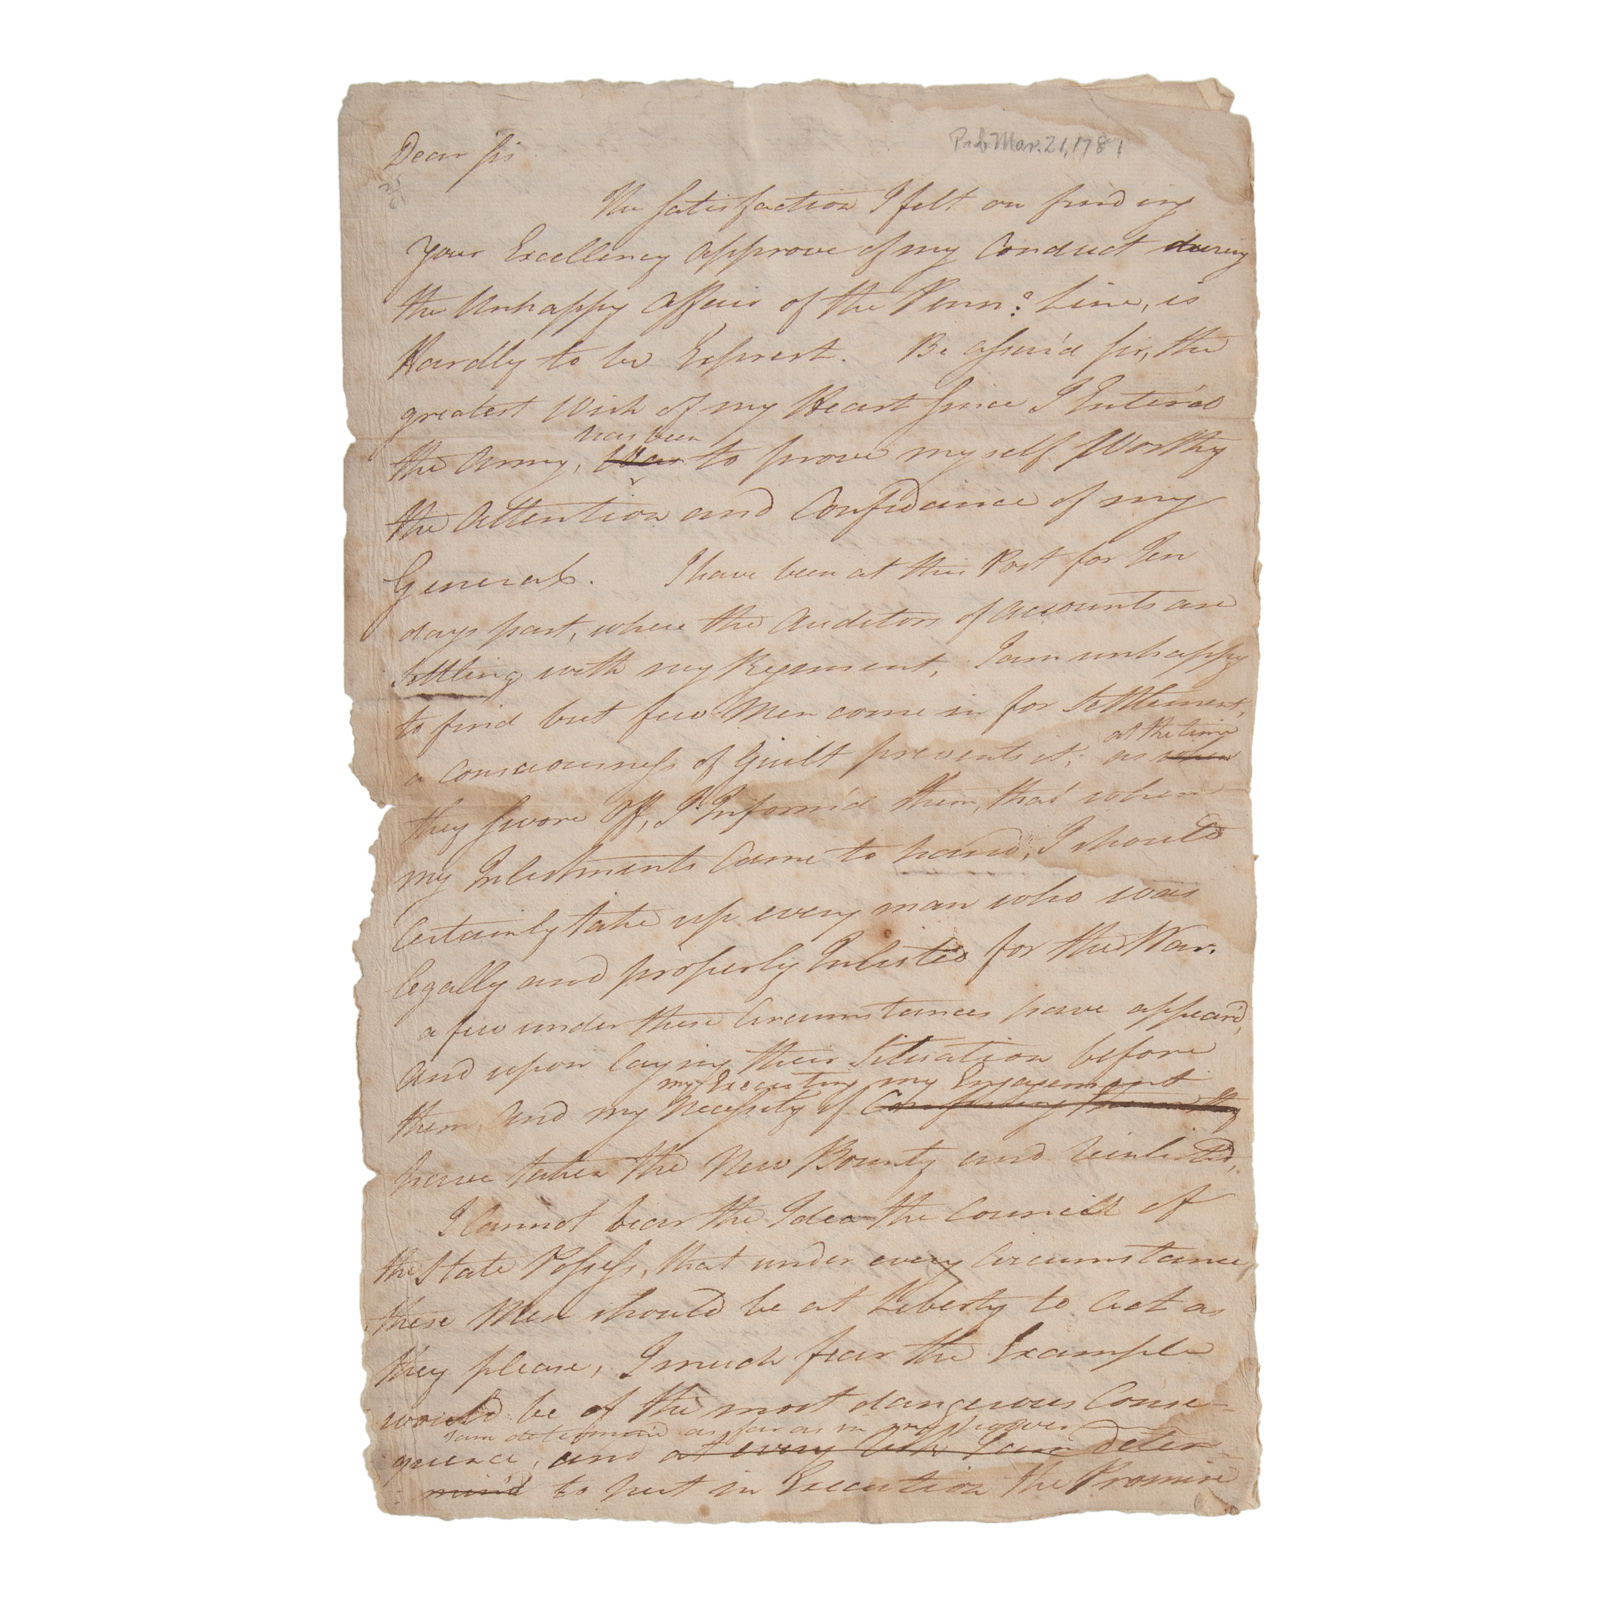 Prob Mar. 21, 1781
Dear Sir
The Satisfaction I felt on finding
your Excellency approve of my Conduct during
the Unhappy affair of the Penn:a Line, is
Hardly to be Exprest. Be assur'd sir, the
greatest Wish of my Heart since I Enter'd
has been
the Army, Was to prove myself Worthy
the Attention and Confidance of my
General. I have been at this Post for Ten
days past, where the Auditors of accounts are
Settling with my Regiment, I am unhappy
to find but few Men come in for Settlement,
a Consciousness of Guilt prevents it; as when
at the time
they swore Off, I Inform'd them, that when
my Inlistments Came to hand, I should
Certainly take up every man who was
legally and properly Inlisted for the War.
a few under these Circumstances have appear'd,
and upon laying their Situation before
my Executing my Engagement
them, and my Necessity of
have taken the New Bounty and reinlisted.
I Cannot bear the Idea the Council of
the State Possess, that under every Circumstance
these Men should be at Liberty to act as
they please, I much fear the Example
would be of the most dangerous Conse-
I am determined as far as in my power
quence, and at every I am deter-
min'd to put in Execution the Promise